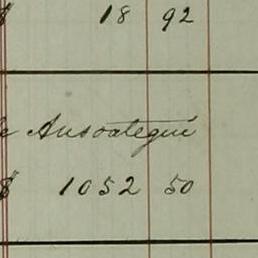 $ 18 92
de Ansoategui
$ 1052 50